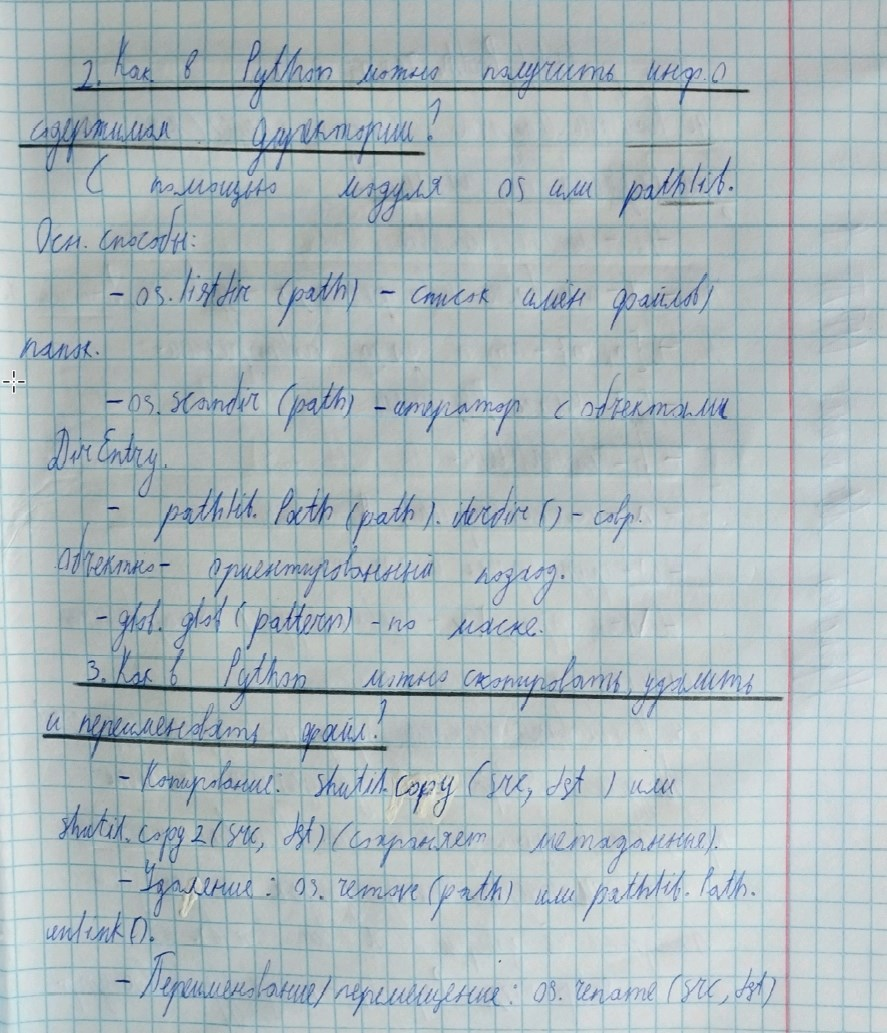 2. Как в Python можно получить инф. о
содержимом директории?
С помощью модуля os или pathlib.
Осн. способы:
- os.listdir (path) - список имён файлов/
папок.
- os.scandir (path) - итератор с объектами
DirEntry.
- pathlib. Path (path). iterdir () - совр.
объектно- ориентированный подход.
- glob. glob (pattern) - по маске.
3. Как в Python можно скопировать, удалить
и переименовать файл?
- Копирование: shutil.copy (src, dst) или
shutil.copy2 (src, dst) (сохраняет метаданные).
- Удаление: os.remove (path) или pathlib.Path.
unlink().
- Переименование/перемещение: os.rename (src, dst)